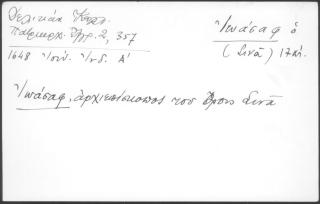 Δελικάν Καλλ.
Πατριαρχ. Ἔγγρ. 2, 357
1648 Ἰουν. Ἰνδ. Α΄
Ἰωάσαφ ὁ
(Σινᾶ) 17 αἰ.
Ἰωάσαφ, ἀρχιεπίσκοπος τοῦ Ὄρους Σινᾶ